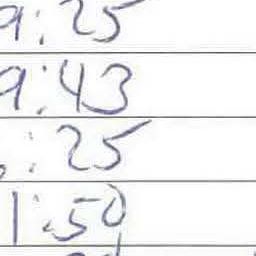 9:25
9:43
:25
1:50